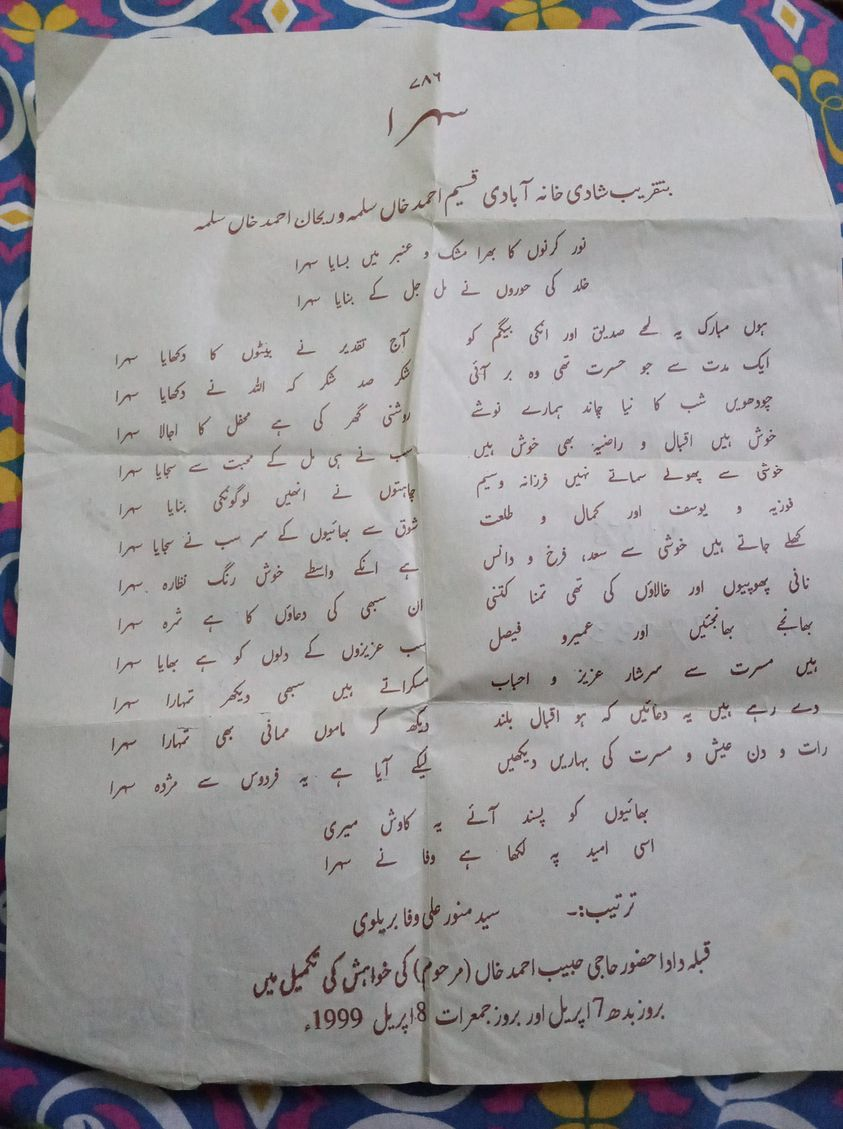 ۷۸۶
سہرا
بتقریب شادی خانہ آبادی قسیم احمد خاں سلمہ و ریحان احمد خاں سلمہ
نور کرنوں کا بھرا مشک و عنبر میں بسایا سہرا
خلد کی حوروں نے مل جل کے بنایا سہرا
ہوں مبارک یہ لمحے صدیق اور انکی بیگم کو آج تقدیر نے بیٹوں کا دکھایا سہرا
ایک مدت سے جو حسرت تھی وہ بر آئی شکر صد شکر کہ اللہ نے دکھایا سہرا
چودھویں شب کا نیا چاند ہمارے نوشے روشنی گھر کی ہے محفل کا اجالا سہرا
خوش ہیں اقبال و راضیہ بھی خوش ہیں سب نے ہی مل کے محبت سے سجایا سہرا
خوشی سے پھولے سماتے نہیں فرزانہ وسیم چاہتوں نے انھیں لوگونکی بنایا سہرا
فوزیہ و یوسف اور کمال و طلعت شوق سے بھائیوں کے سر سب نے سجایا سہرا
کھلے جاتے ہیں خوشی سے سعد، فرخ و دانس ہے انکے واسطے خوش رنگ نظارہ سہرا
نانی پھوپیوں اور خالاؤں کی تھی تمنا کتنی ان سبھی کی دعاؤں کا ہے ثمرہ سہرا
بھانجے بھانجئیں اور عمیرو فیصل سب عزیزوں کے دلوں کو ہے بھایا سہرا
ہیں مسرت سے سرشار عزیز و احباب مسکراتے ہیں سبھی دیکھر تمہارا سہرا
دے رہے ہیں یہ دعائیں کہ ہو اقبال بلند دیکھ کر ماموں ممانی بھی تمہارا سہرا
رات و دن عیش و مسرت کی بہاریں دیکھیں لیکے آیا ہے یہ فردوس سے مژدہ سہرا
بھائیوں کو پسند آئے یہ کاوش میری
اسی امید پہ لکھا ہے وفا نے سہرا
ترتیب:۔ سید منور علی وفا بریلوی
قبلہ دادا حضور حاجی حبیب احمد خاں (مرحوم) کی خواہش کی تکمیل میں
بروز بدھ 7 اپریل اور بروز جمعرات 8 اپریل 1999ء